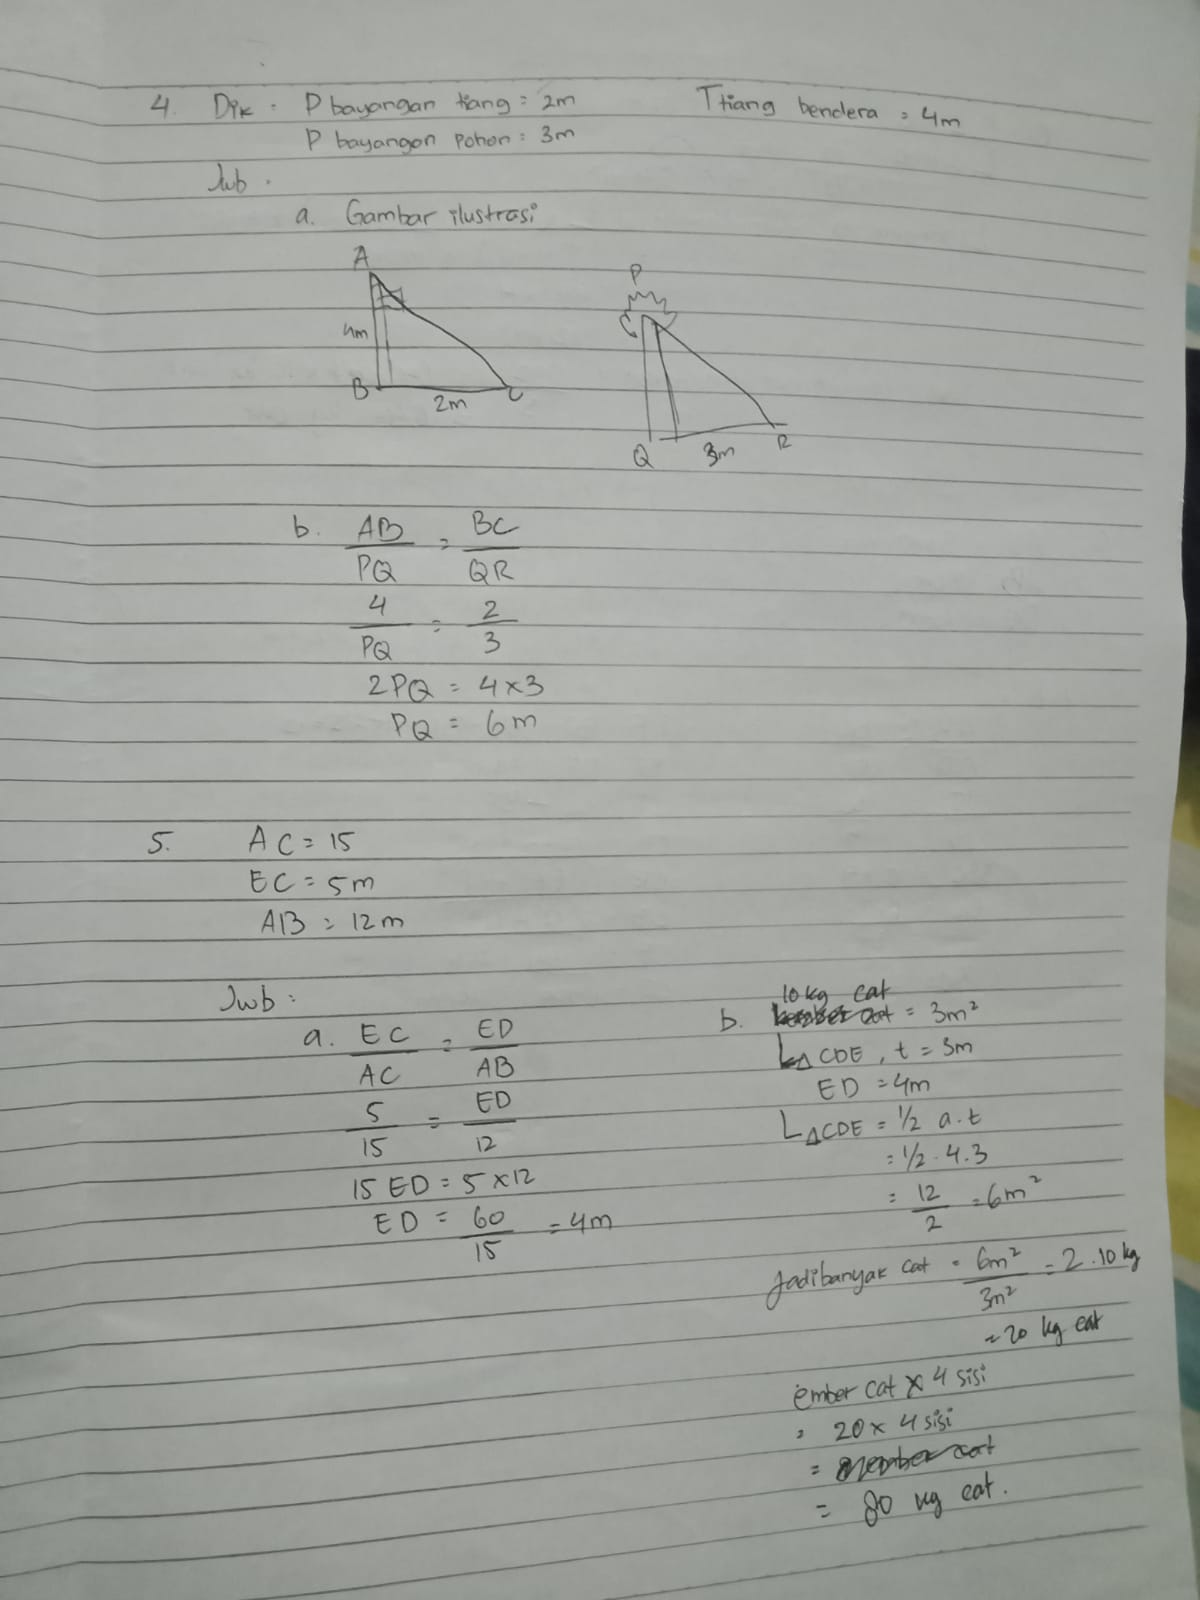 4. Dik : P bayangan tiang = 2m T tiang bendera = 4m
P bayangan pohon = 3m
Jwb .
a. Gambar ilustrasi
A
4m
B
2m
C
P
Q
3m
R
b. AB/PQ = BC/QR
4/PQ = 2/3
2PQ = 4 x 3
PQ = 6m
5. AC = 15
EC = 5m
AB = 12m
Jwb :
a. EC/AC = ED/AB
5/15 = ED/12
15 ED = 5 x 12
ED = 60/15 = 4m
10 kg cat
b. = 3m²
L△CDE, t = 3m
ED = 4m
L△CDE = 1/2 a.t
= 1/2 . 4.3
= 12/2 = 6m²
Jadi banyak cat = 6m²/3m² = 2 . 10 kg
= 20 kg cat
ember cat x 4 sisi
= 20 x 4 sisi
=
= 80 kg cat.